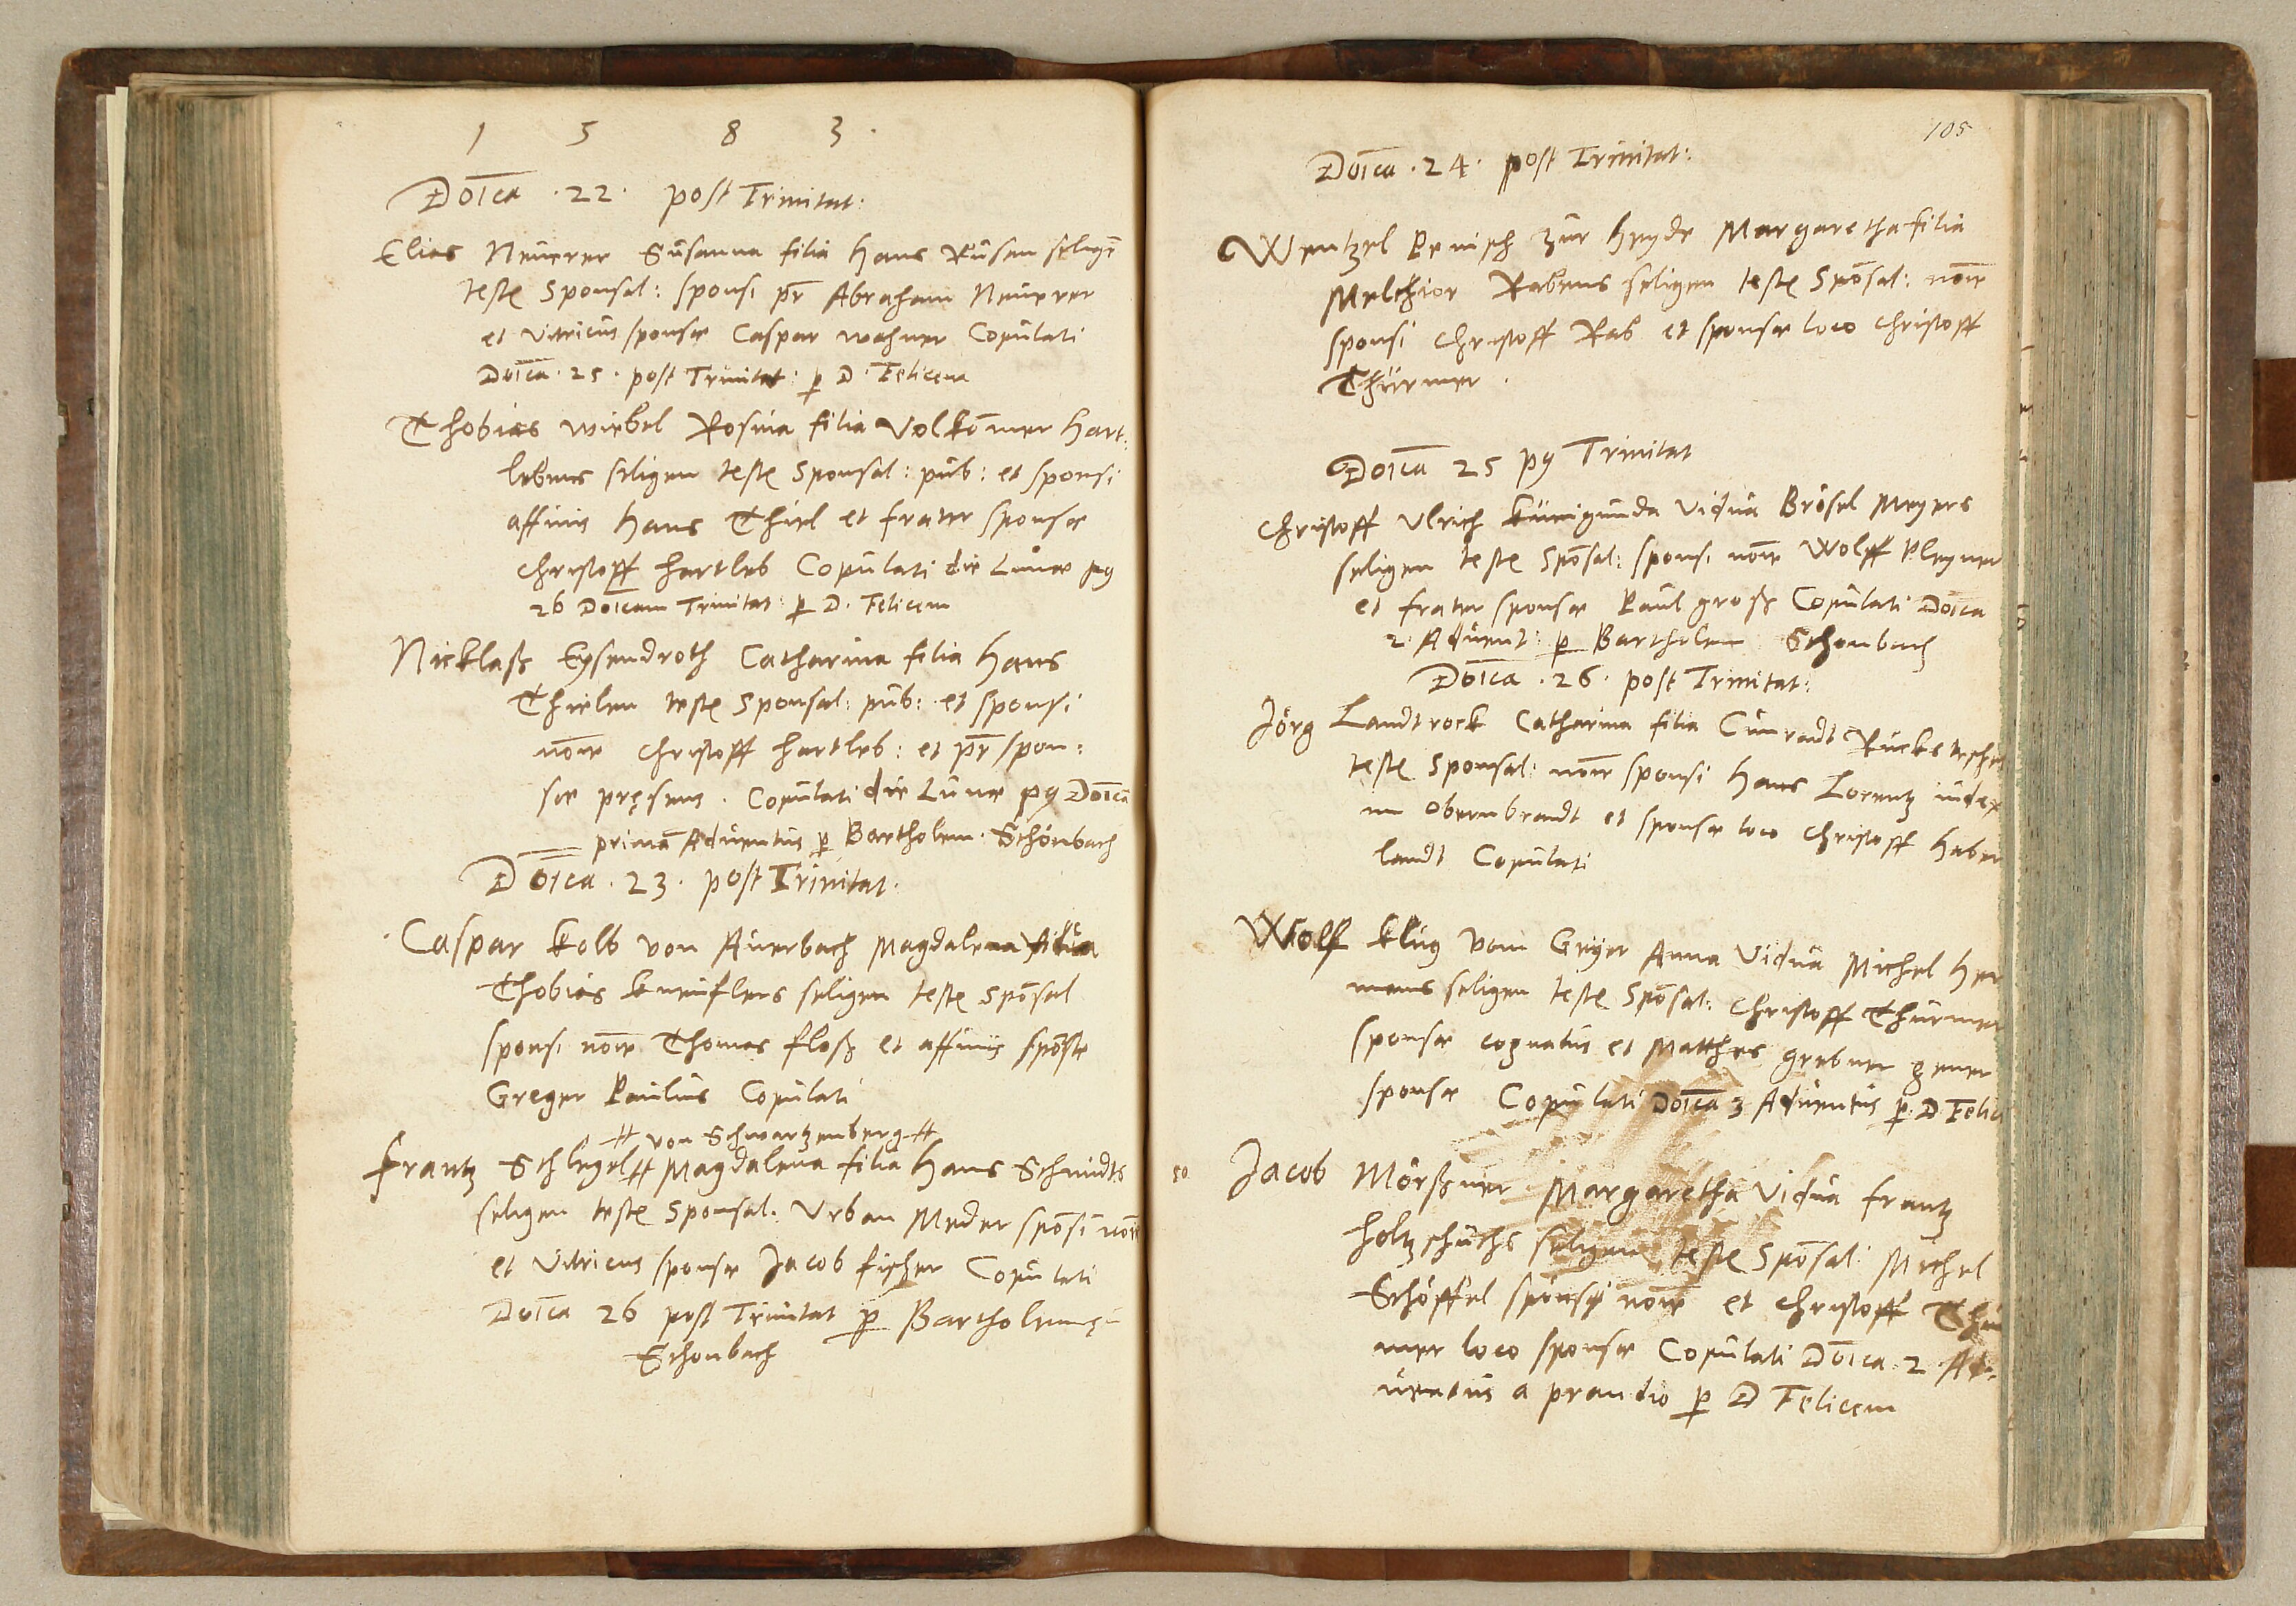 1 5 8 3.
Doīca . 22 . post Trinitat:
Elias Neuerer Susanna filia Hans Rusen seliḡ
testes Sponsal: sponsi pr̄ Abraham Neuerer
et vitricus sponsae Caspar Wahner Copulati
Doīca . 25 . post Trinitat: p D. Felicem
Thobias Wiebel Rosina filia Volkom̄er Hart:
lebens seligen testes Sponsal: pub: et sponsi
affinis Hans Thiel et frater sponsae
Christoff Hartleb Copulati die Lunae p9
26 Doīcam Trinitat: p D. Felicem
Nicklaß Eysendroth Catharina filia Hans
Thielen testes Sponsal: pub: et sponsi
noīe Christoff Hartleb: et pr̄ spon:
sae pręsens . Copulati die Lunae p9 Doīcā
primā Adventus p Bartholem. Schönbach
Doīca . 23 . post Trinitat.
Caspar Kolb von Auerbach Magdalena filia
Thobias Kneuflers seligen testes Spōsal
sponsi noīe Thomas Floß et affinis spōsae
Greger Paulus Copulati
# von Schwartzenberg #
Frantz Schlegel # Magdalena filia Hans Schmidts
seligen testes Sponsal. Urban Meder spōsi noīe
et Vitricus sponsae Jacob Fischer Copulati
Doīca 26 post Trinitat p Bartholemę
Schonbach
105
Doīca . 24 . post Trinitat:
Wentzel Penisch zur Heyde Margaretha filia
Melchior Rabens seligen testes Spōsal: noīe
sponsi Christoff Rab et sponsae loco Christoff
Thürmer .
Doīca 25 p9 Trinitat
Christoff Ulrich Kunigunda Vidua Brösel Meyers
seligen testes Spōsal: sponsi noīe Wolff Kleyner
et frater sponsae Paul Groß Copulati Doīca
2. Advent: p Bartholem Schonbach
Doīca . 26 . post Trinitat:
Jörg Landtrock Catharina filia Cunradt Ruckteschel
testes Sponsal: noīe sponsi Hans Lorentz iudex
in Obernbrandt et sponsae loco Christoff Haber
landt Copulati
Wolf Klug vom Geyer Anna Vidua Michel Her
mans seligen testes Spōsal: Christoff Thürmer
sponsae cognatus et Matthes Grebner gener
sponsae Copulati Doīca 3 Adventus p D Felic
50 Jacob Mörßner Margaretha Vidua Frantz
Holtzschuchs seligen testes Spōsal: Michel
Schöffel sponsi noīe et Christoff Thür
mer loco sponsae Copulati Doīca . 2 Ad:
ventus a prandio p D Felicem